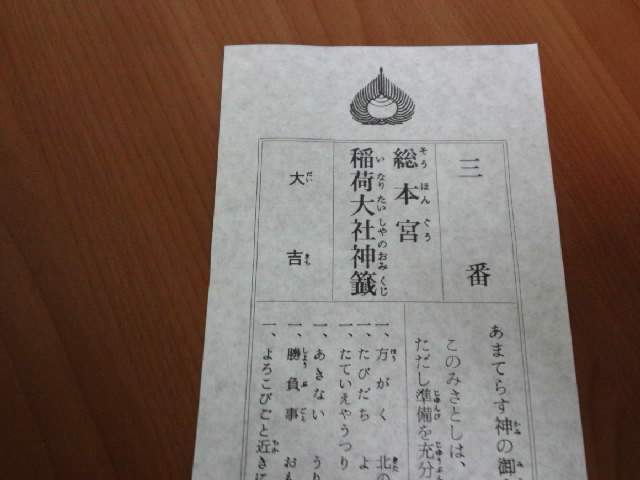 三番
総本宮
稲荷大社神籤
大吉
あまてらす神の御
このみさとしは、
ただし準備を充分
一、方がく 北の
一、たびだち よ
一、たていえやうつり
一、あきない うり
一、勝負事 おも
一、よろこびごと近きに